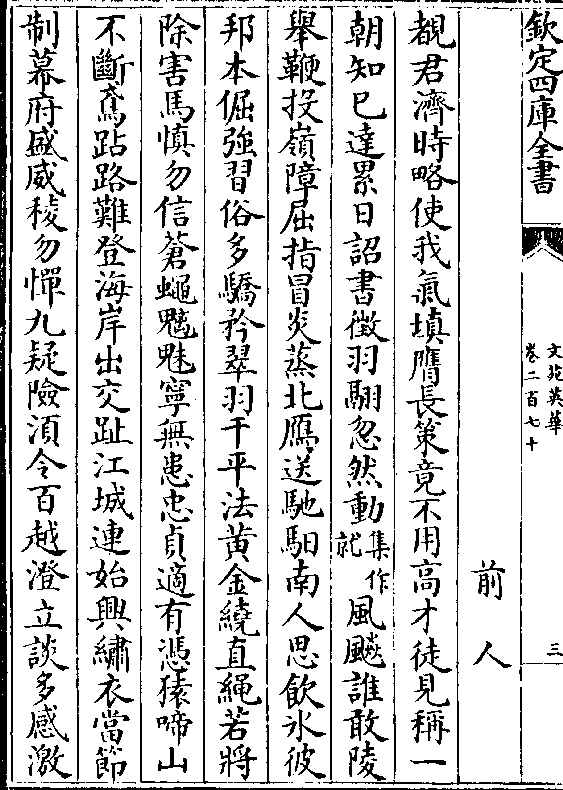 欽定四庫全書
文苑英華
卷二百七十
三
前人
覩君濟時略使我氣填膺長策竟不用高才徒見稱一
朝知已達累日詔書徴羽騆忽然動集作就風飈誰敢陵
舉鞭投嶺障屈指冒炎蒸北鴈送馳馹南人思飲氷彼
邦本倔強習俗多驕矜翠羽干平法黄金繞直繩若將
除害馬慎勿信蒼蠅魑魅寧無患忠貞適有憑猿啼山
不斷鳶跕路難登海岸出交趾江城連始興繡衣當節
制幕府盛威稜勿憚九疑險湏令百越澄立談多感激